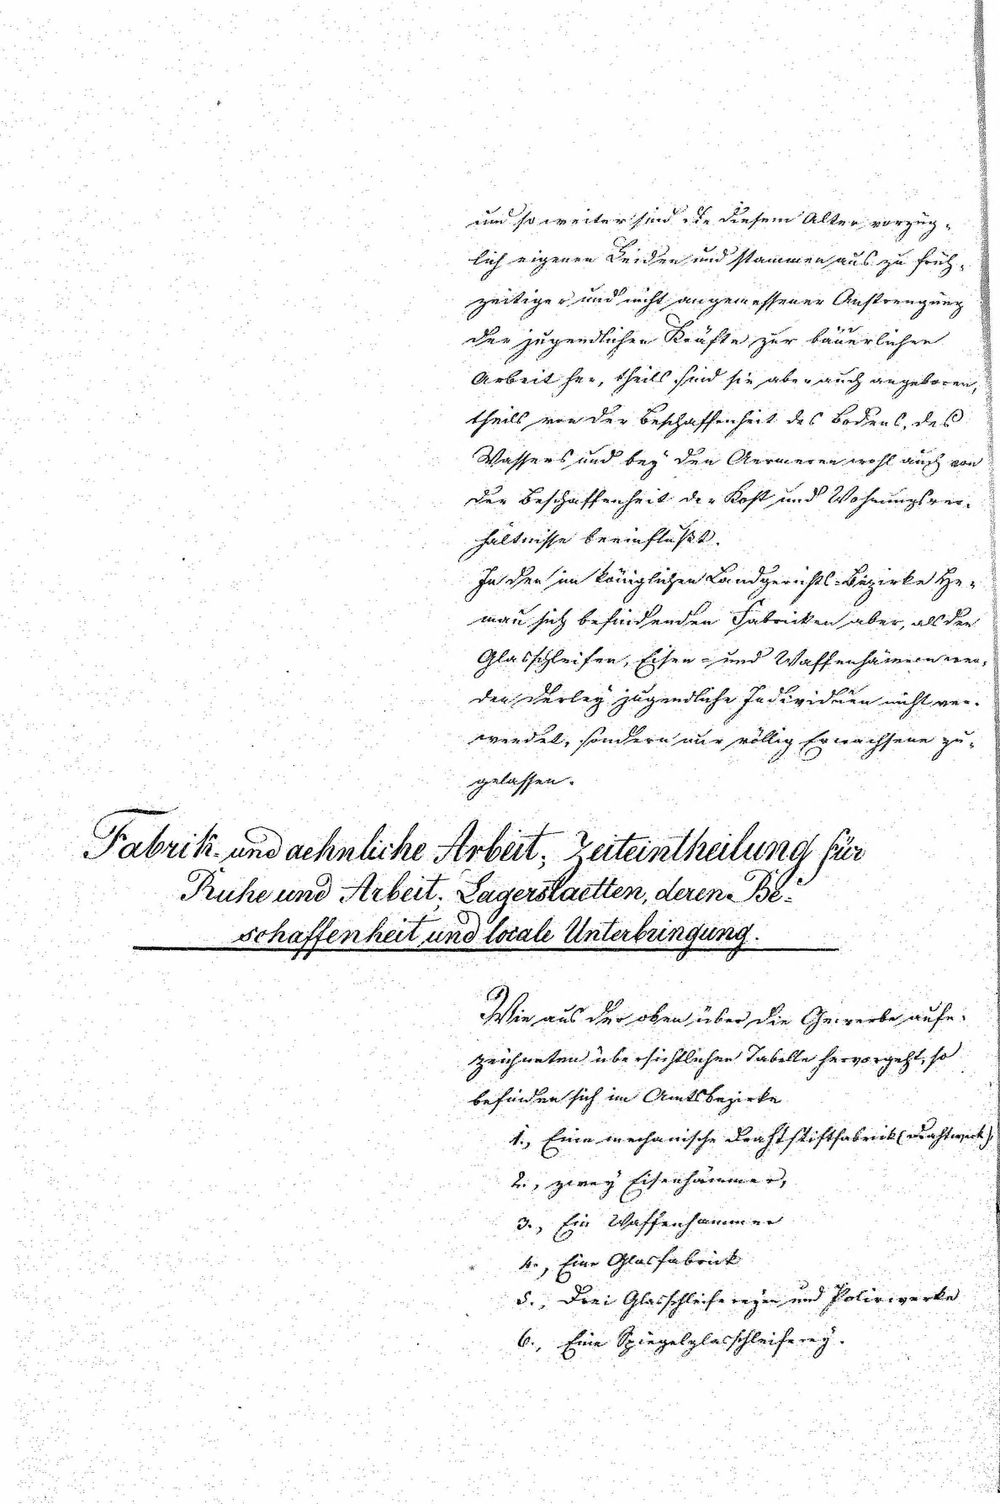 und so weiter sind die diesem Alter vorzüg-
lich eigenen Leiden und stammen aus zu früh-
zeitiger und nicht angemessener Anstrengung
der jugendlichen Kräfte zur bäuerlichen
Arbeit her, theils sind sie aber auch angeboren,
theils von der Beschaffenheit des Bodens, des
Wassers und bey den Aermeren wohl auch von
der Beschaffenheit der Kost und Wohnungsver-
hältnisse beeinflußt.
In den im königlichen Landgerichts-Bezirke He-
mau sich befindenden Fabricken aber, als den
Glasschleifen, Eisen- und Waffenhämmern wer-
den derley jugendliche Individuen nicht ver-
wendet, sondern nur völlig Erwachsene zu-
gelassen.
Fabrik- und aehnliche Arbeit; Zeiteintheilung für
Ruhe und Arbeit; Lagerstaetten, deren Be-
schaffenheit und locale Unterbringung.
Wie aus der oben über die Gewerbe aufge-
zeichneten übersichtlichen Tabelle hervorgeht, so
befinden sich im Amtsbezirke
1., Eine mechanische Drahtstiftfabrik (Drahtwerk),
2., zwey Eisenhämmer,
3., Ein Waffenhammer
4., Eine Glasfabrick
5., Drei Glasschleifereyen und Polirwerke
6., Eine Spiegelglasschleiferey.